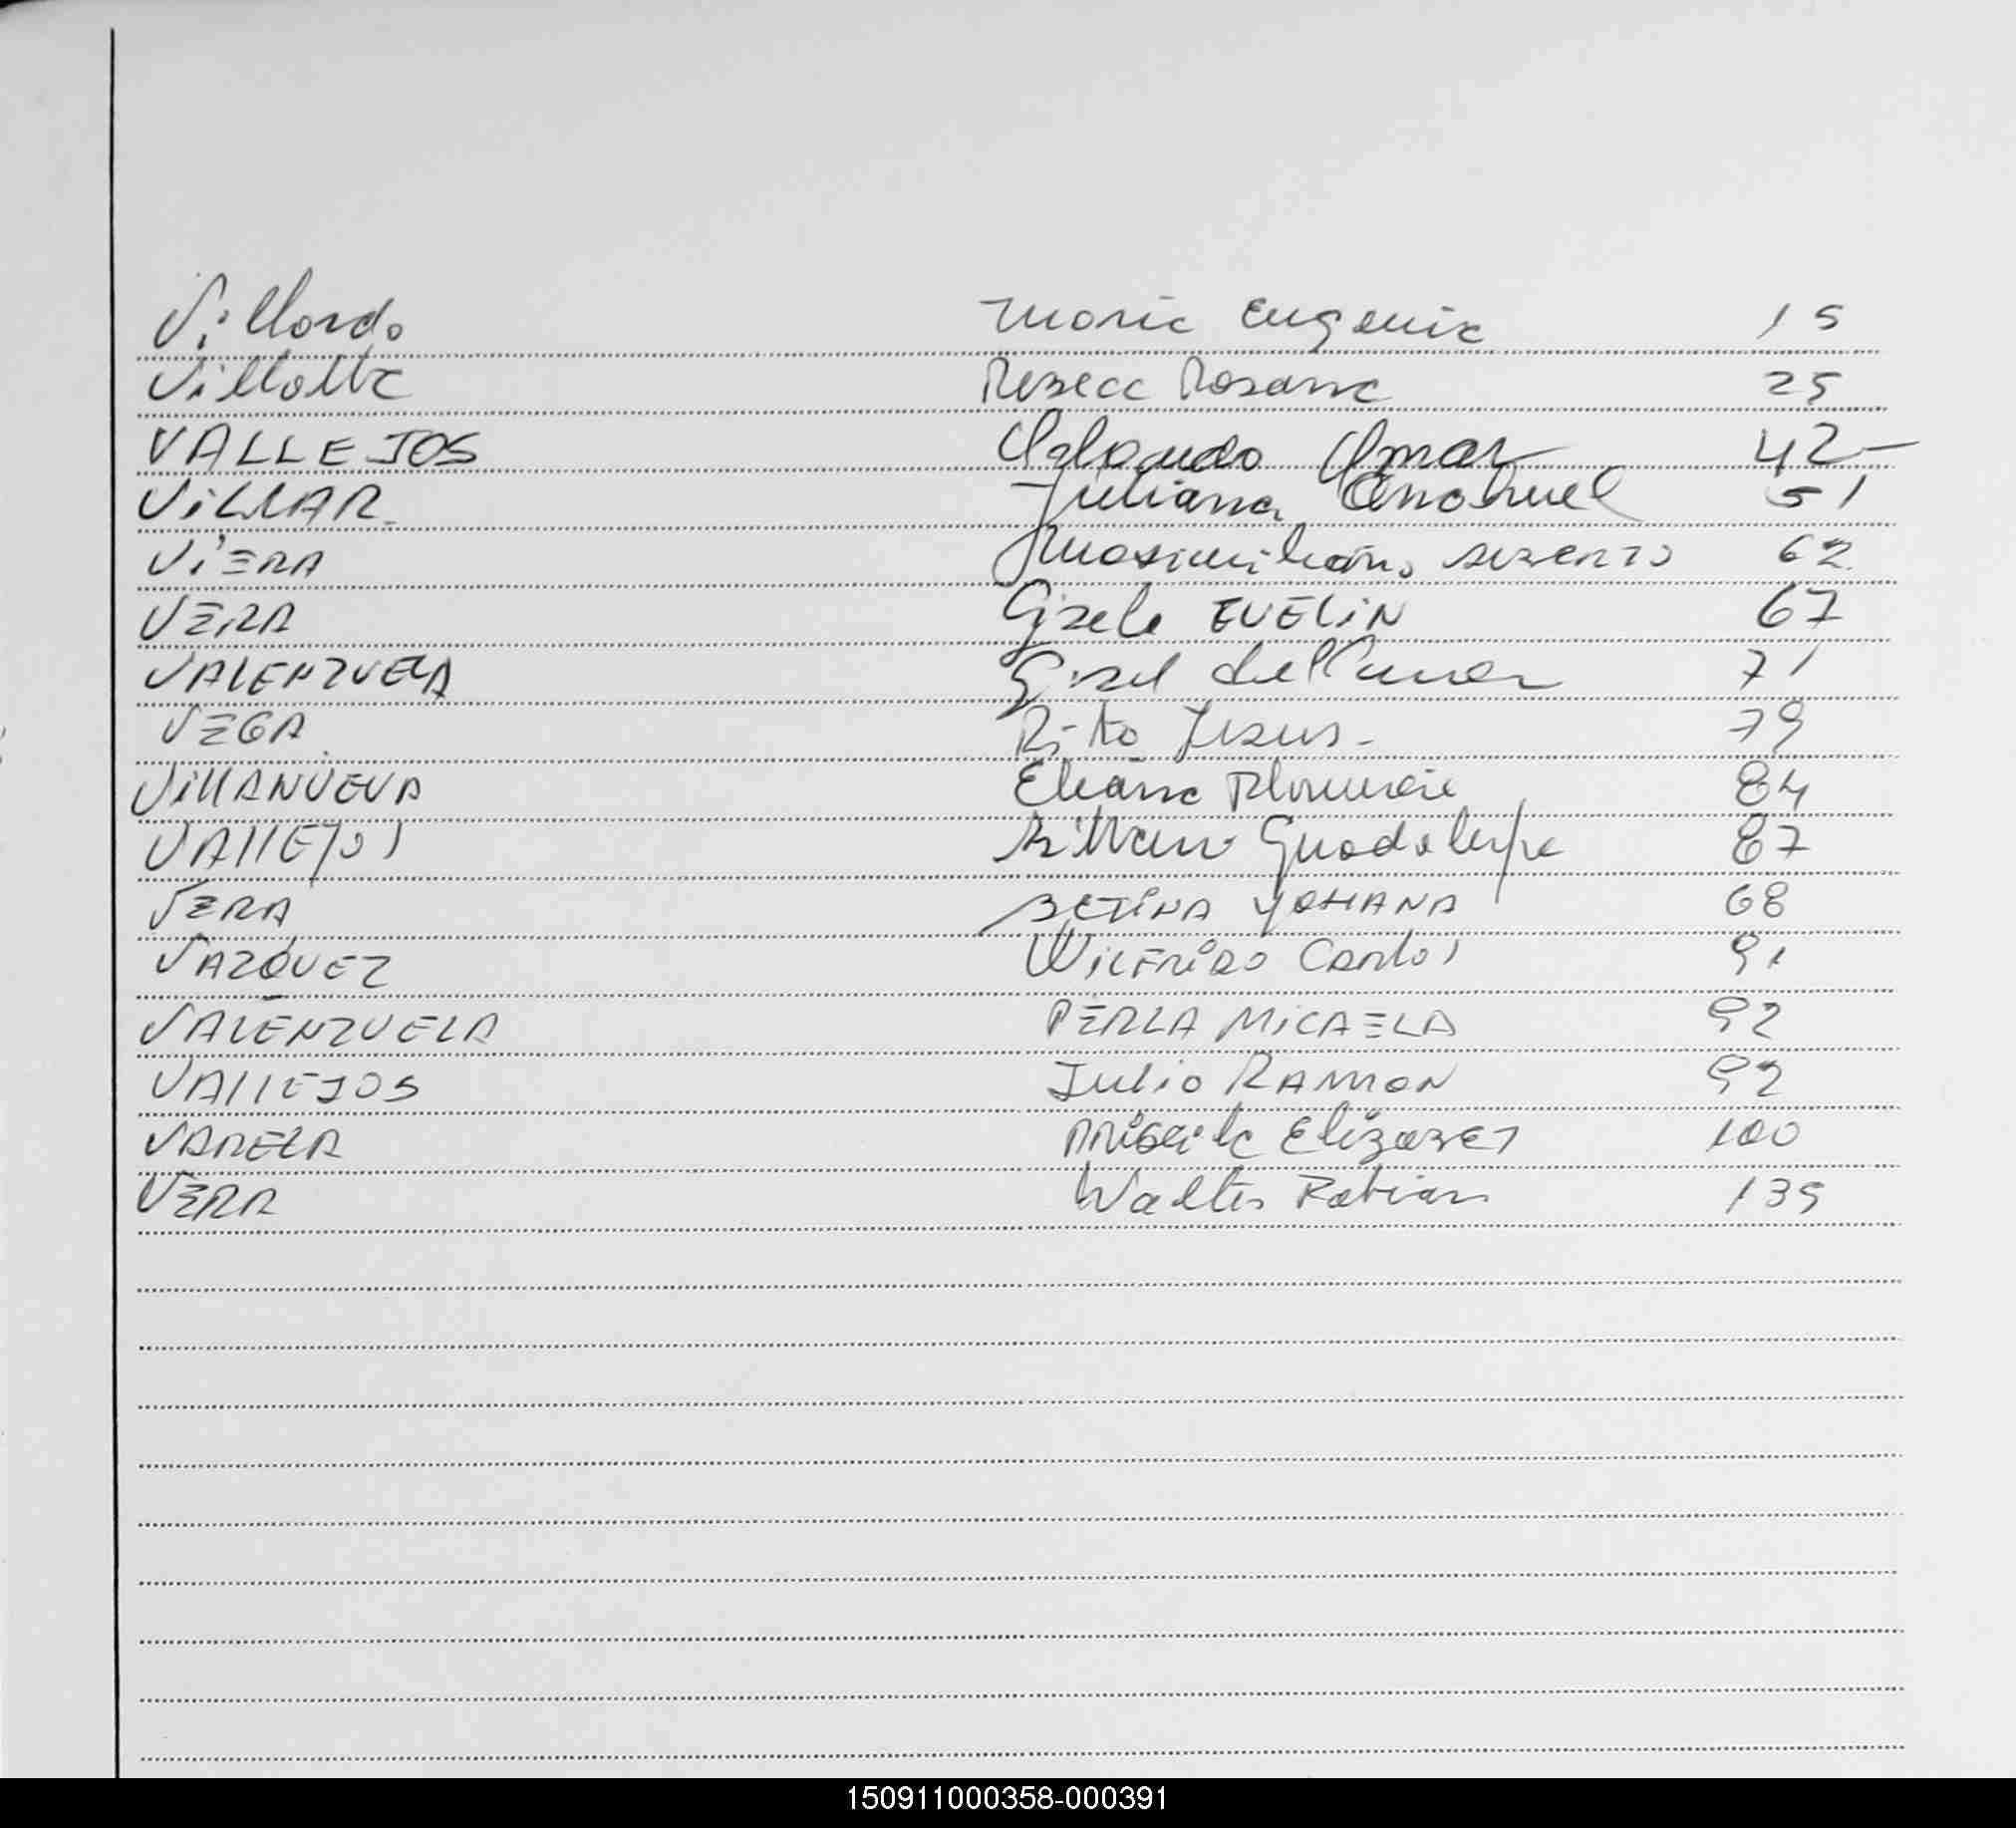 Villordo Maria Eugenia 15
Villalba Rebeca Rosana 25
VALLEJOS Orlando Omar 42-
ViLLAR Juliana 51
ViERA Maximiliano ALBERTO 62
VERA Gisele EVELIN 67
VALENZUELA Gisel del 71
VEGA Rito Jesus 79
ViLLANUEVA Eliana 84
VALLEJOS Guadalupe 87
VERA BETINA YOHANA 68
VAZQUEZ WILFRIDO Carlos 91
VALENZUELA PERLA MICAELA 92
VALLEJOS Julio RAMON 92
VARELA Elizabet 100
VERA Walter Fabian 135
150911000358-000391